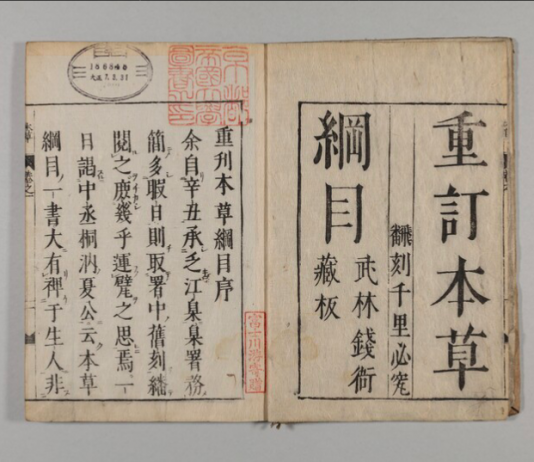 重訂本草
綱目
翻刻千里必究
武林錢衙
藏板
重刊本草綱目序
余自辛丑承乏江臬臬署務
簡多暇日則取署中舊刻繙
閱之庶幾乎運甓之思焉一
日謁中丞桐汭夏公云本草
綱目一書大有裨于生人非
富士川游寄贈